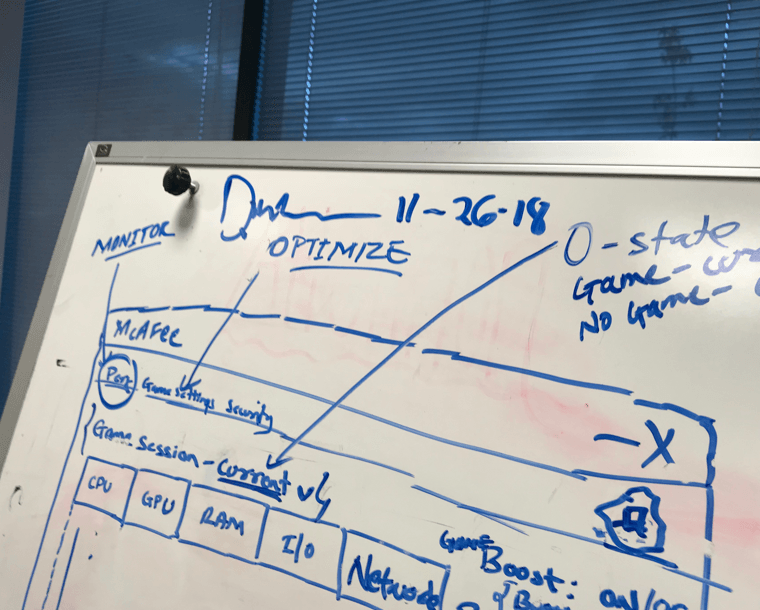 11-26-18
MONITOR
OPTIMIZE
0-state
Game-
No Game-
McAfee
- X
Game settings Security
Game Session - Current v
CPU
GPU
RAM
I/O
Network
Game
Boost: